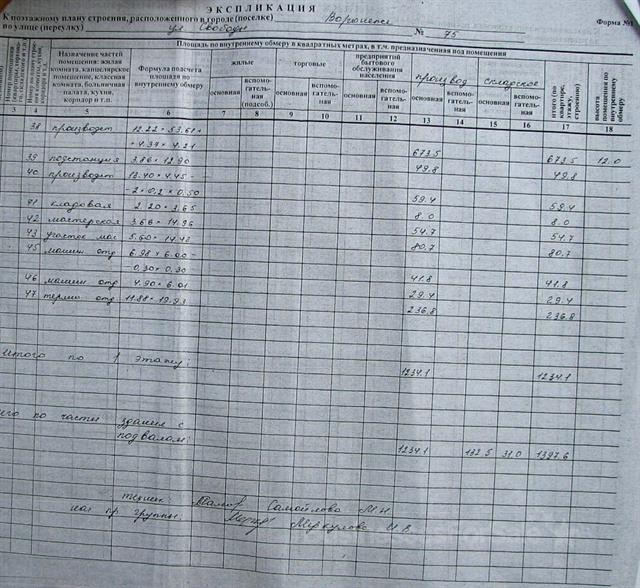 ЭКСПЛИКАЦИЯ
К поэтажному плану строения, расположенного в городе (поселке) Воронеж
Форма №
по улице (переулку) ул Свободы № 75
Площадь по внутреннему обмеру в квадратных метрах, в т.ч. предназначенная под помещения
Назначение частей помещения: жилая комната, канцелярское помещение, классная комната, больничная палата, кухня, коридор и т.п.
Формула подсчета площади по внутреннему обмеру
жилые
торговые
предприятий бытового обслуживания населения
производ
складское
основная вспомогательная (подсоб.) основная вспомогательная основная вспомогательная основная вспомогательная основная вспомогательная
итого (по квартире, этажу, строению)
высота помещения по внутреннему обмеру
3 4 5 6 7 8 9 10 11 12 13 14 15 16 17 18
38 производст 12.22 × 53.61 +
+ 4.39 × 4.21 673.5 673.5 12.0
39 подстанция 3.86 × 12.90 49.8 49.8
40 производст 13.40 × 4.45 -
- 2 × 0.2 × 0.50 59.4 59.4
41 кладовая 2.20 × 3.65 8.0 8.0
42 мастерская 3.66 × 14.96 54.7 54.7
43 участок 5.60 × 14.42 80.7 80.7
45 машин отд 6.98 × 6.00 -
- 0.30 × 0.30 41.8 41.8
46 машин отд 4.90 × 6.01 29.4 29.4
47 термо отд 11.88 × 19.93 236.8 236.8
итого по 1 этажу: 1234.1 1234.1
по части здания с
подвалом: 1234.1 132.5 31.0 1397.6
техник: Самойлова М.Н.
нач пр группы: Меркулова И.В.